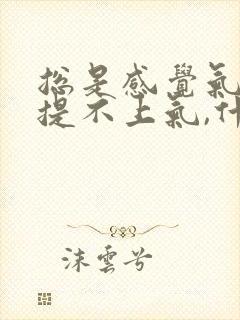 总是感覺氣
提不上氣,什
沫雲兮